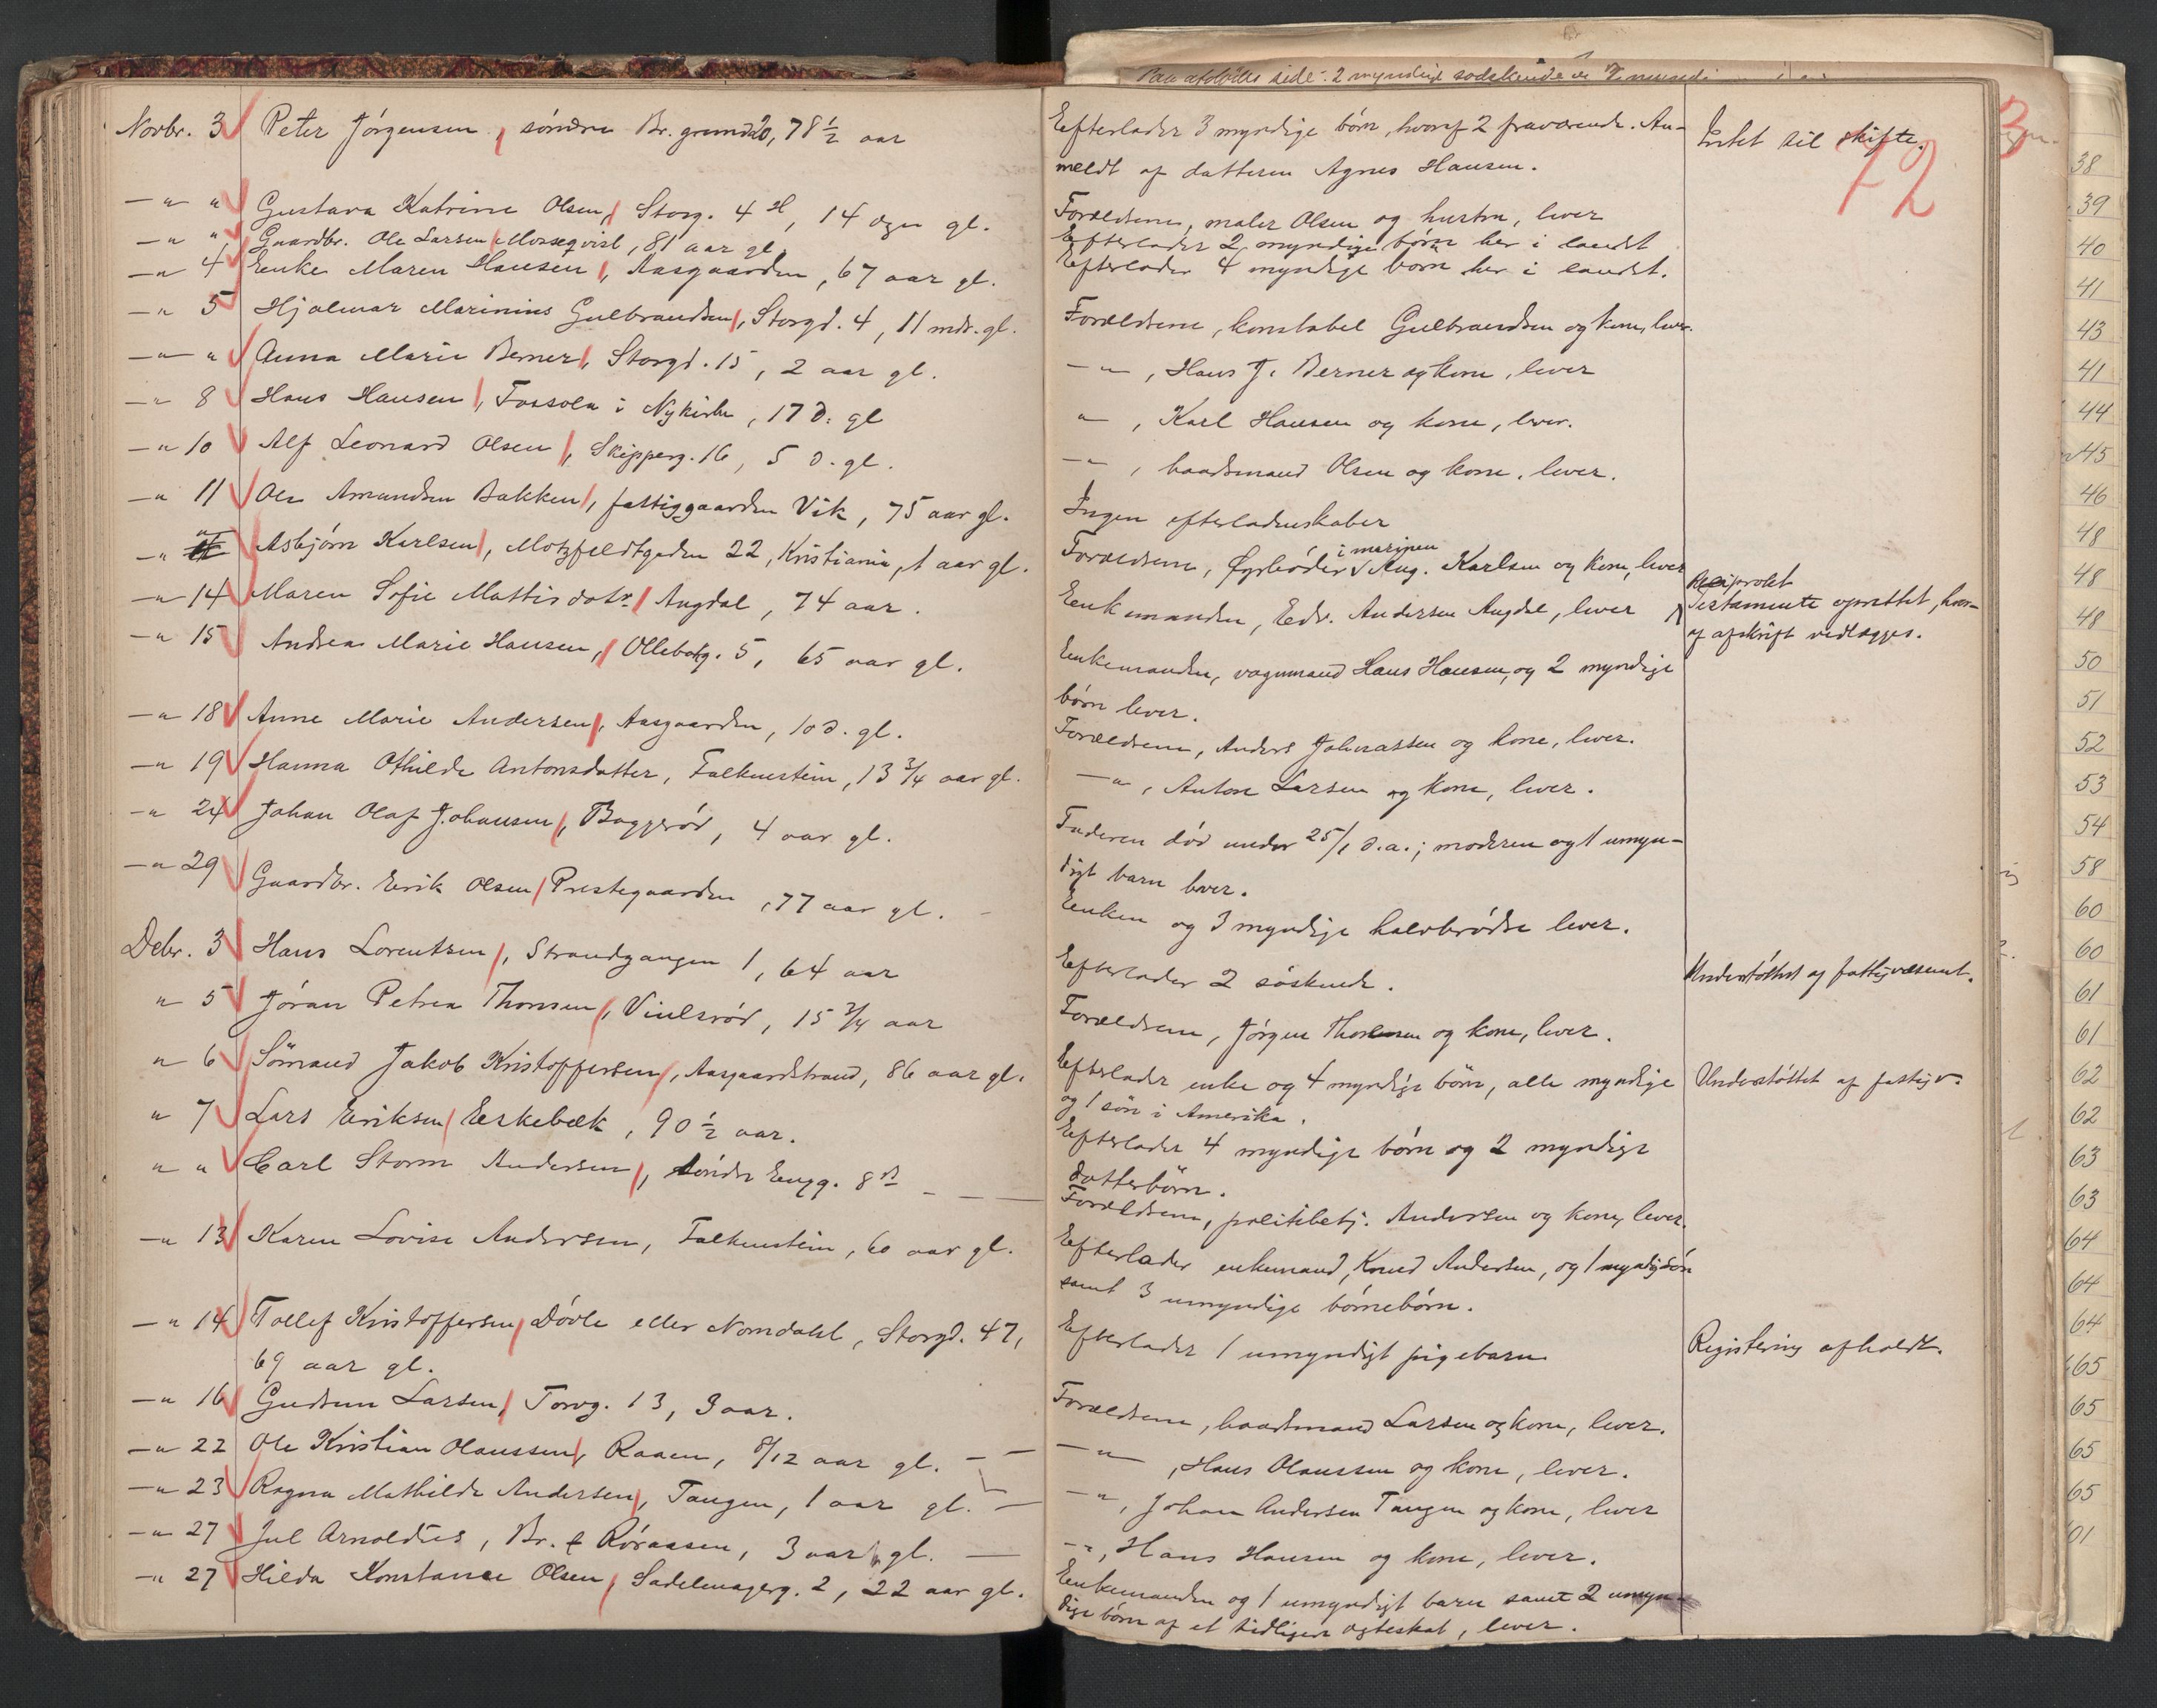 Novbr. 3 Peter Jørgensen, søndre Br. grund 20, 78 1/2 aar
-"- " Gustava Katrine Olsen, Storg. 4 H, 14 dger gl.
-"- " Gaardbr. Ole Larsen Morseqvist, 81 aar gl
-" 4 Enke Maren Hansen, Aasgaarden, 67 aar gl.
-" 5 Hjalmar Marinius Gulbrandsen, Storgd. 4, 11 mdr. gl.
-"- " Anna Marie Berner, Storgd. 15, 2 aar gl.
-" 8 Hans Hansen, Fossola i Nykirke, 17 d. gl
-" 10 Alf Leonard Olsen, Skipperg. 16, 5 d. gl.
-" 11 Ole Amundsen Bakken, fattiggaarden Vik, 75 aar gl.
-" Asbjørn Karlsen, Motzfeldtgaden 22, Kristiania, 1 aar gl.
-" 14 Maren Sofie Mattisdotr. Augdal, 74 aar.
-" 15 Andrea Marie Hansen, Ollebakg. 5, 65 aar gl.
-" 18 Anne Marie Andersen, Aasgaarden, 10 d. gl.
-" 19 Hanna Othilde Antonsdatter, Falkenstein, 13 3/4 aar gl.
-" 24 Johan Olaf Johansen, Baggerød, 4 aar gl.
-" 29 Gaardbr. Erik Olsen Prestegaarden, 77 aar gl.
Debr. 3 Hans Lorentsen, Strandgangen 1, 64 aar
" 5 Jøran Petrea Thomsen, Viulsrød, 15 3/4 aar
" 6 Sømand Jakob Kristoffersen, Aasgaardstrand, 86 aar gl.
" 7 Lars Eriksen Eskebæk, 90 1/2 aar.
" " Carl Storm Andersen, søndre Engg. 8
-" 13 Karen Lovise Andersen, Falkenstein, 60 aar gl.
-" 14 Tollef Kristoffersen Døvle eller Nomdahl, Storgd. 47,
69 aar gl.
-" 16 Gudrun Larsen, Torvg. 13, 3 aar.
-" 22 Ole Kristian Olaussen, Raaen, 8/12 aar gl.
-" 23 Ragna Mathilde Andersen, Tangen, 1 aar gl.
-" 27 Jul Arnoldus, Br. Røraasen, 3 aar gl.
-" 27 Hilda Konstance Olsen, Sadelmagerg. 2, 22 aar gl.
Efterlader 3 myndige børn, hvoraf 2 fraværende. An-
meldt af datteren Agnes Hansen.
Intet til skifte.
72
Forældrene, maler Olsen og hustru, lever
Efterlader 2 myndige børn her i landet
Efterlader 4 myndige børn her i landet.
Forældrene, konstabel Gulbrandsen og kone, lever.
-"-, Hans J. Berner og kone, lever
", Karl Hansen og kone, lever.
-"-, baadsmand Olsen og kone, lever.
Ingen efterladenskaber
Forældrene, Fyrbøder i marinen Aug. Karlsen og kone, lever
Enkemanden, Edv. Andersen Augdal, lever
Reciprokt
Testamente oprettet, hvor-
af afskrift vedlægges.
Enkemanden, vognmand Hans Hansen, og 2 myndige
børn lever.
Forældrene, Anders Johnassen og kone, lever.
-"-, Anton Larsen og kone, lever.
Faderen død under 25/1 d.a.; moderen og 1 umyn-
digt barn lever.
Enken og 3 myndige halvbrødre lever.
Efterlader 2 søskende.
Understøttet af fattigvæsenet.
Forældrene, Jørgen Thomsen og kone, lever.
Efterlader enke og 4 myndige børn, alle myndige
og 1 søn i Amerika.
Understøttet af fattigv.
Efterlader 4 myndige børn og 2 myndige
datterbørn.
Forældrene, politibetj. Andersen og kone, lever.
Efterlader enkemand, Knud Andersen, og 1 myndig søn
samt 3 umyndige børnebørn.
Efterlader 1 umyndigt pigebarn
Registering afholdt.
Forældrene, baadsmand Larsen og kone, lever.
-"-, Hans Olaussen og kone, lever.
-"-, Johan Andersen Tangen og kone, lever
-"-, Hans Hansen og kone, lever.
Enkemanden og 1 umyndigt barn samt 2 umyn-
dige børn af et tidligere ægteskab, lever.
38
39
40
41
43
41
44
45
46
48
48
48
50
51
52
53
54
58
60
60
61
61
62
62
63
63
64
64
64
65
65
65
65
01